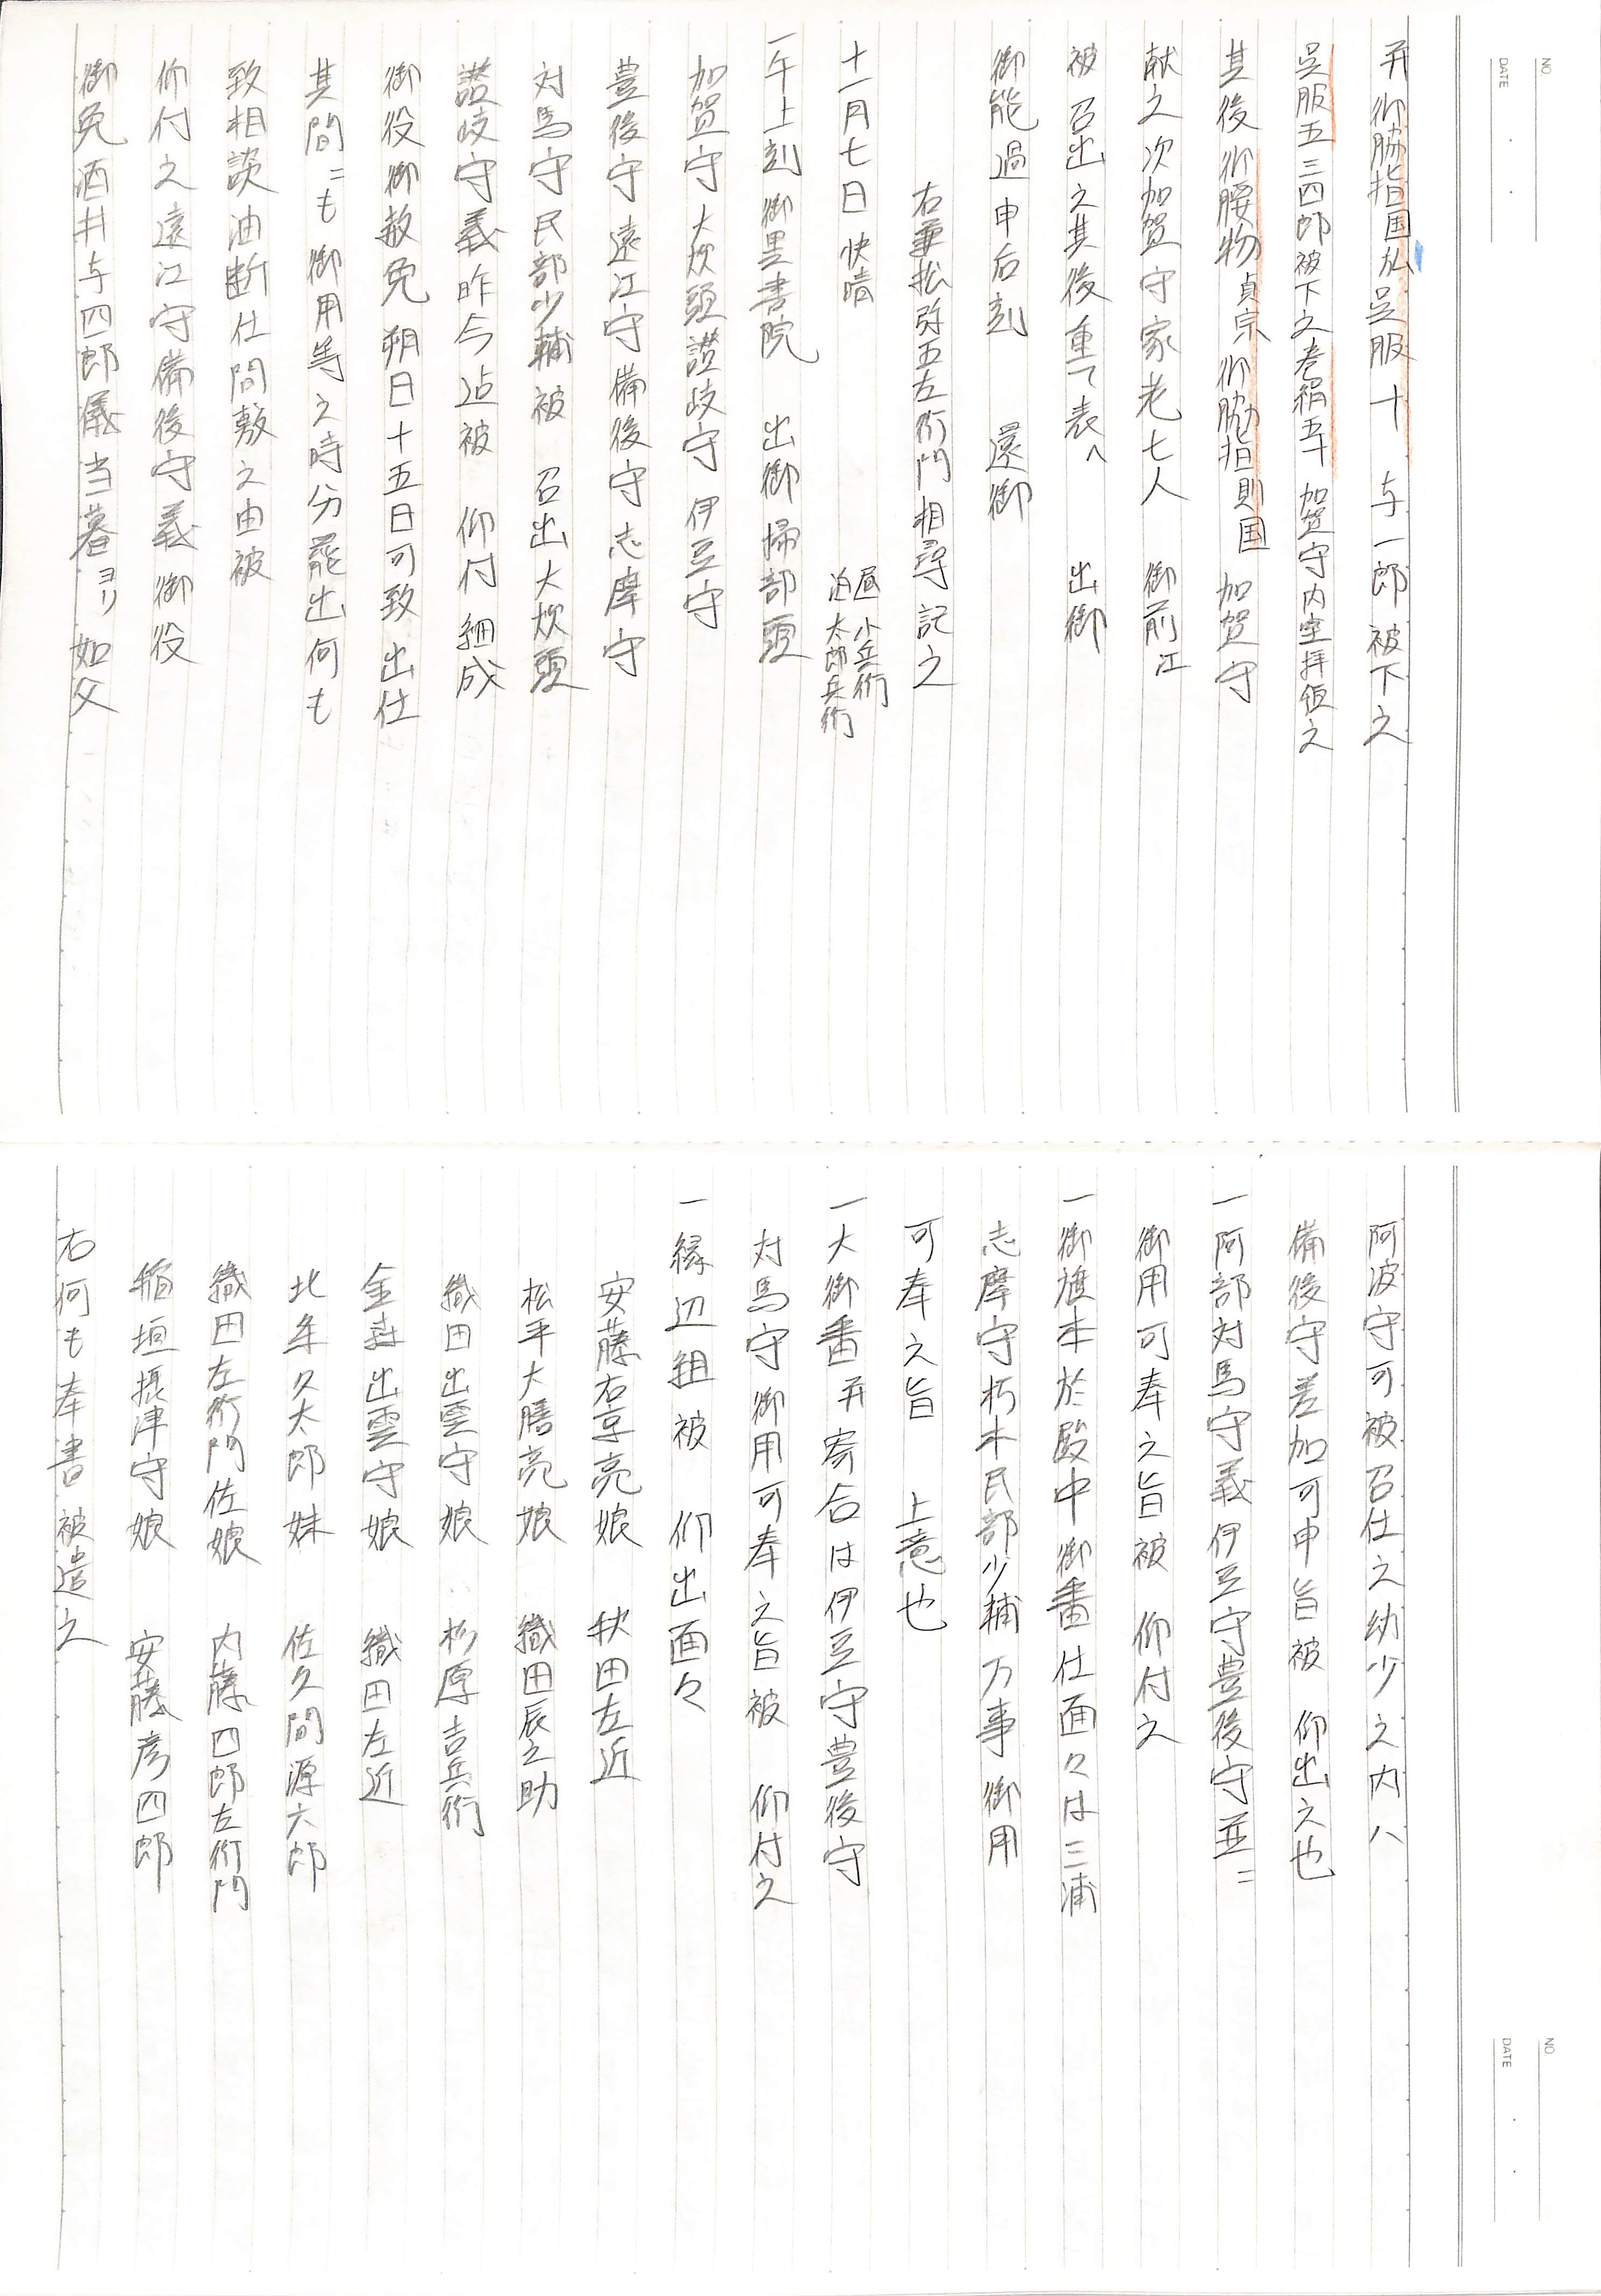 NO.
DATE
幷御脇指国弘呉服十 与一郎被下之
呉服五三四郎被下之巻絹五十 加賀守内室拝領之
其後御腰物貞宗御脇指則国 加賀守
献之次加賀守家老七人 御前江
被 召出之其後重て表へ 出御
御能過申后刻 還御
右兼松弥五左衛門相尋記之
十一月七日 快晴 昼 小兵衛
泊 太郎兵衛
一午上刻御黒書院 出御掃部頭
加賀守大炊頭讃岐守 伊豆守
豊後守遠江守備後守志摩守
対馬守民部少輔被 召出大炊頭
讃岐守義昨今迠被 仰付細成
御役御赦免朔日十五日可致出仕
其間ニも御用等之時分罷出何も
致相談油断仕間敷之由被
仰付之遠江守備後守義御役
御免酒井与四郎儀当暮ヨリ如父
NO
DATE
阿波守可被召仕之幼少之内ハ
備後守差加可申旨被 仰出之也
一阿部対馬守義伊豆守豊後守並ニ
御用可奉之旨被 仰付之
一御旗本於殿中御番仕面々は三浦
志摩守朽木民部少輔万事御用
可奉之旨 上意也
一大御番幷寄合は伊豆守豊後守
対馬守御用可奉之旨被 仰付之
一縁辺組被 仰出面々
安藤右京亮娘 秋田左近
松平大膳亮娘 織田辰之助
織田出雲守娘 杉原吉兵衛
金森出雲守娘 織田左近
北条久太郎妹 佐久間源六郎
織田左衛門佐娘 内藤四郎左衛門
稲垣摂津守娘 安藤彦四郎
右何も奉書被遣之